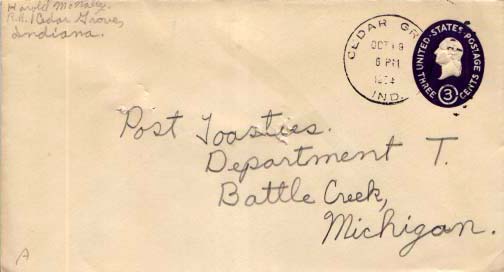 Harold McNally
R.R. 1 Cedar Grove,
Indiana.
CEDAR GR
OCT 19
6 PM
IND.
UNITED·STATES·POSTAGE
THREE 3 CENTS
Post Toasties.
Department T.
Battle Creek,
Michigan.
A